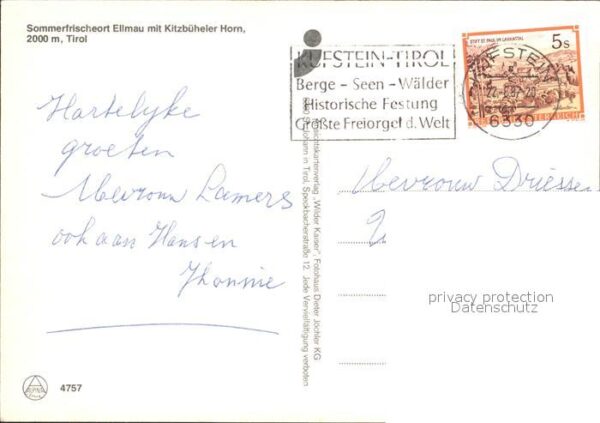 Sommerfrischeort Ellmau mit Kitzbüheler Horn,
2000 m, Tirol
Hartelyke
groeten
Mevrouw Lamers
ook aan Hans en
Jhonnie
4757
KUFSTEIN-TIROL
Berge - Seen - Wälder
Historische Festung
Größte Freiorgel d. Welt
STIFT ST. PAUL IM LAVANTTAL
5s
KUFSTEIN
6330
Ansichtskartenverlag „Wilder Kaiser", Fotohaus Dieter Jöchler KG
St. Johann in Tirol, Speckbacherstraße 12. Jede Vervielfältigung verboten
Mevrouw Driessen
privacy protection
Datenschutz